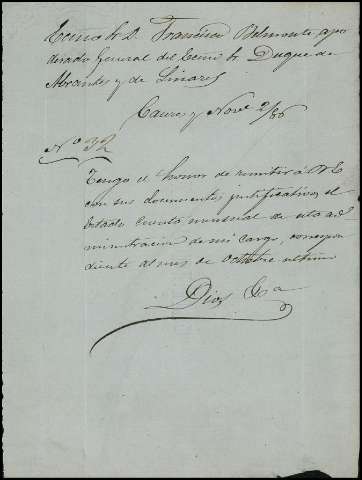 Excmo Sr D. Francisco Belmonte apo
derado General del Excmo Sr Duque de
Abrantes y de Linares
Caceres y Nove 2/86
No 32
Tengo el honor de remitir á V E
con sus documentos justificativos, el
Estado cuenta mensual de esta ad
ministracion de mi cargo, correspon
diente al mes de Octubre ultimo
Dios Gª